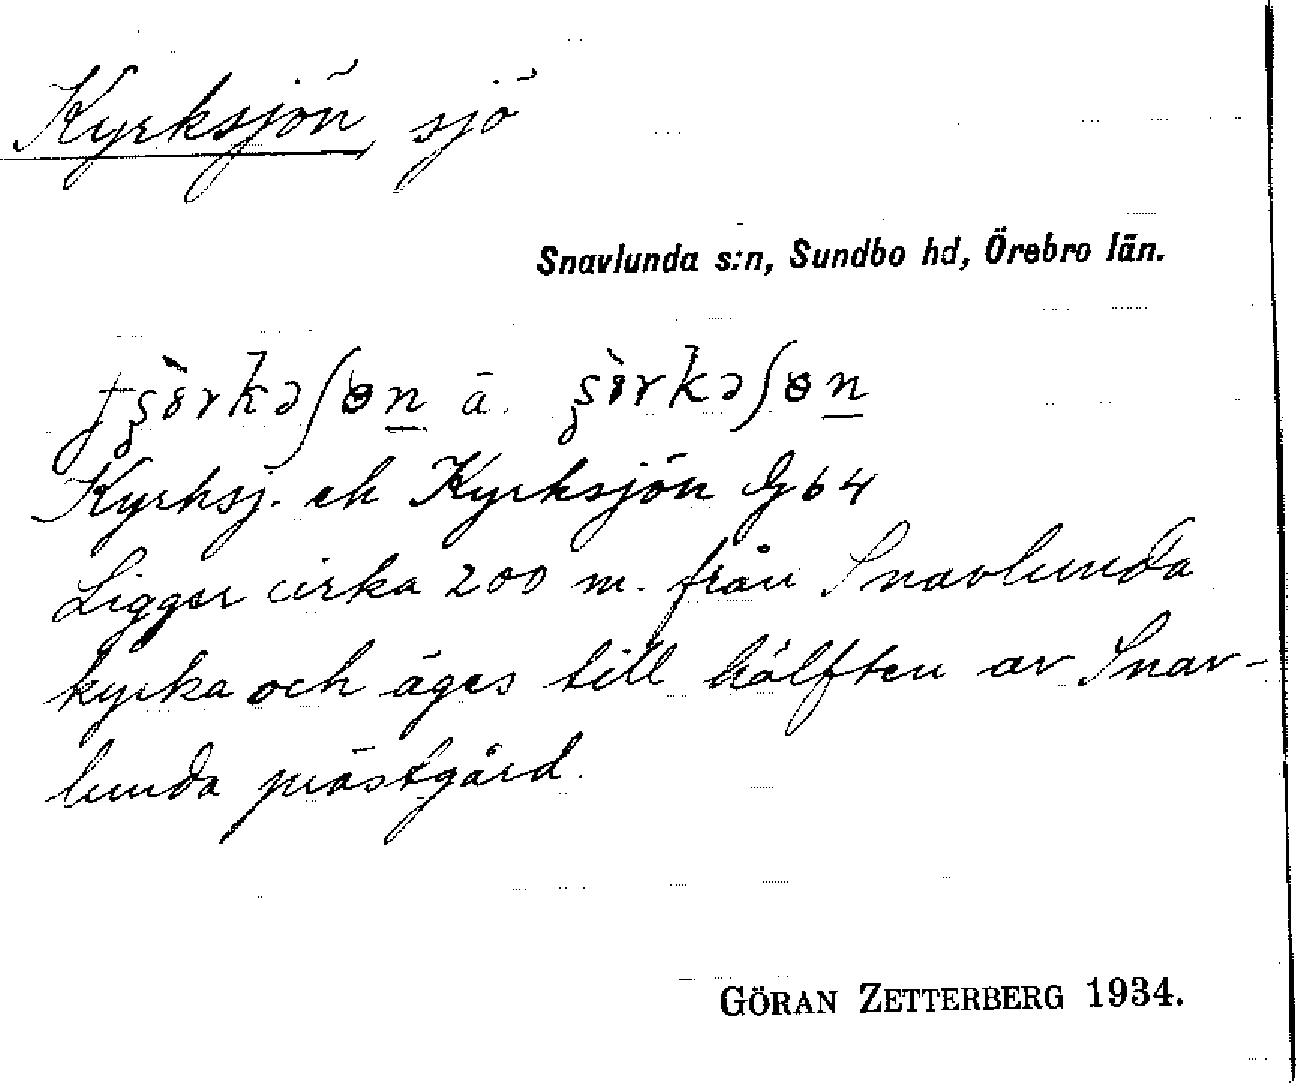 Kyrksjön, sjö
Snavlunda s:n, Sundbo hd, Örebro län.
ä.
Kyrksj. ek Kyrksjön G64
Ligger cirka 200 m. från Snavlunda
kyrka och äges till hälften av Snav-
lunda prästgård.
GÖRAN ZETTERBERG 1934.